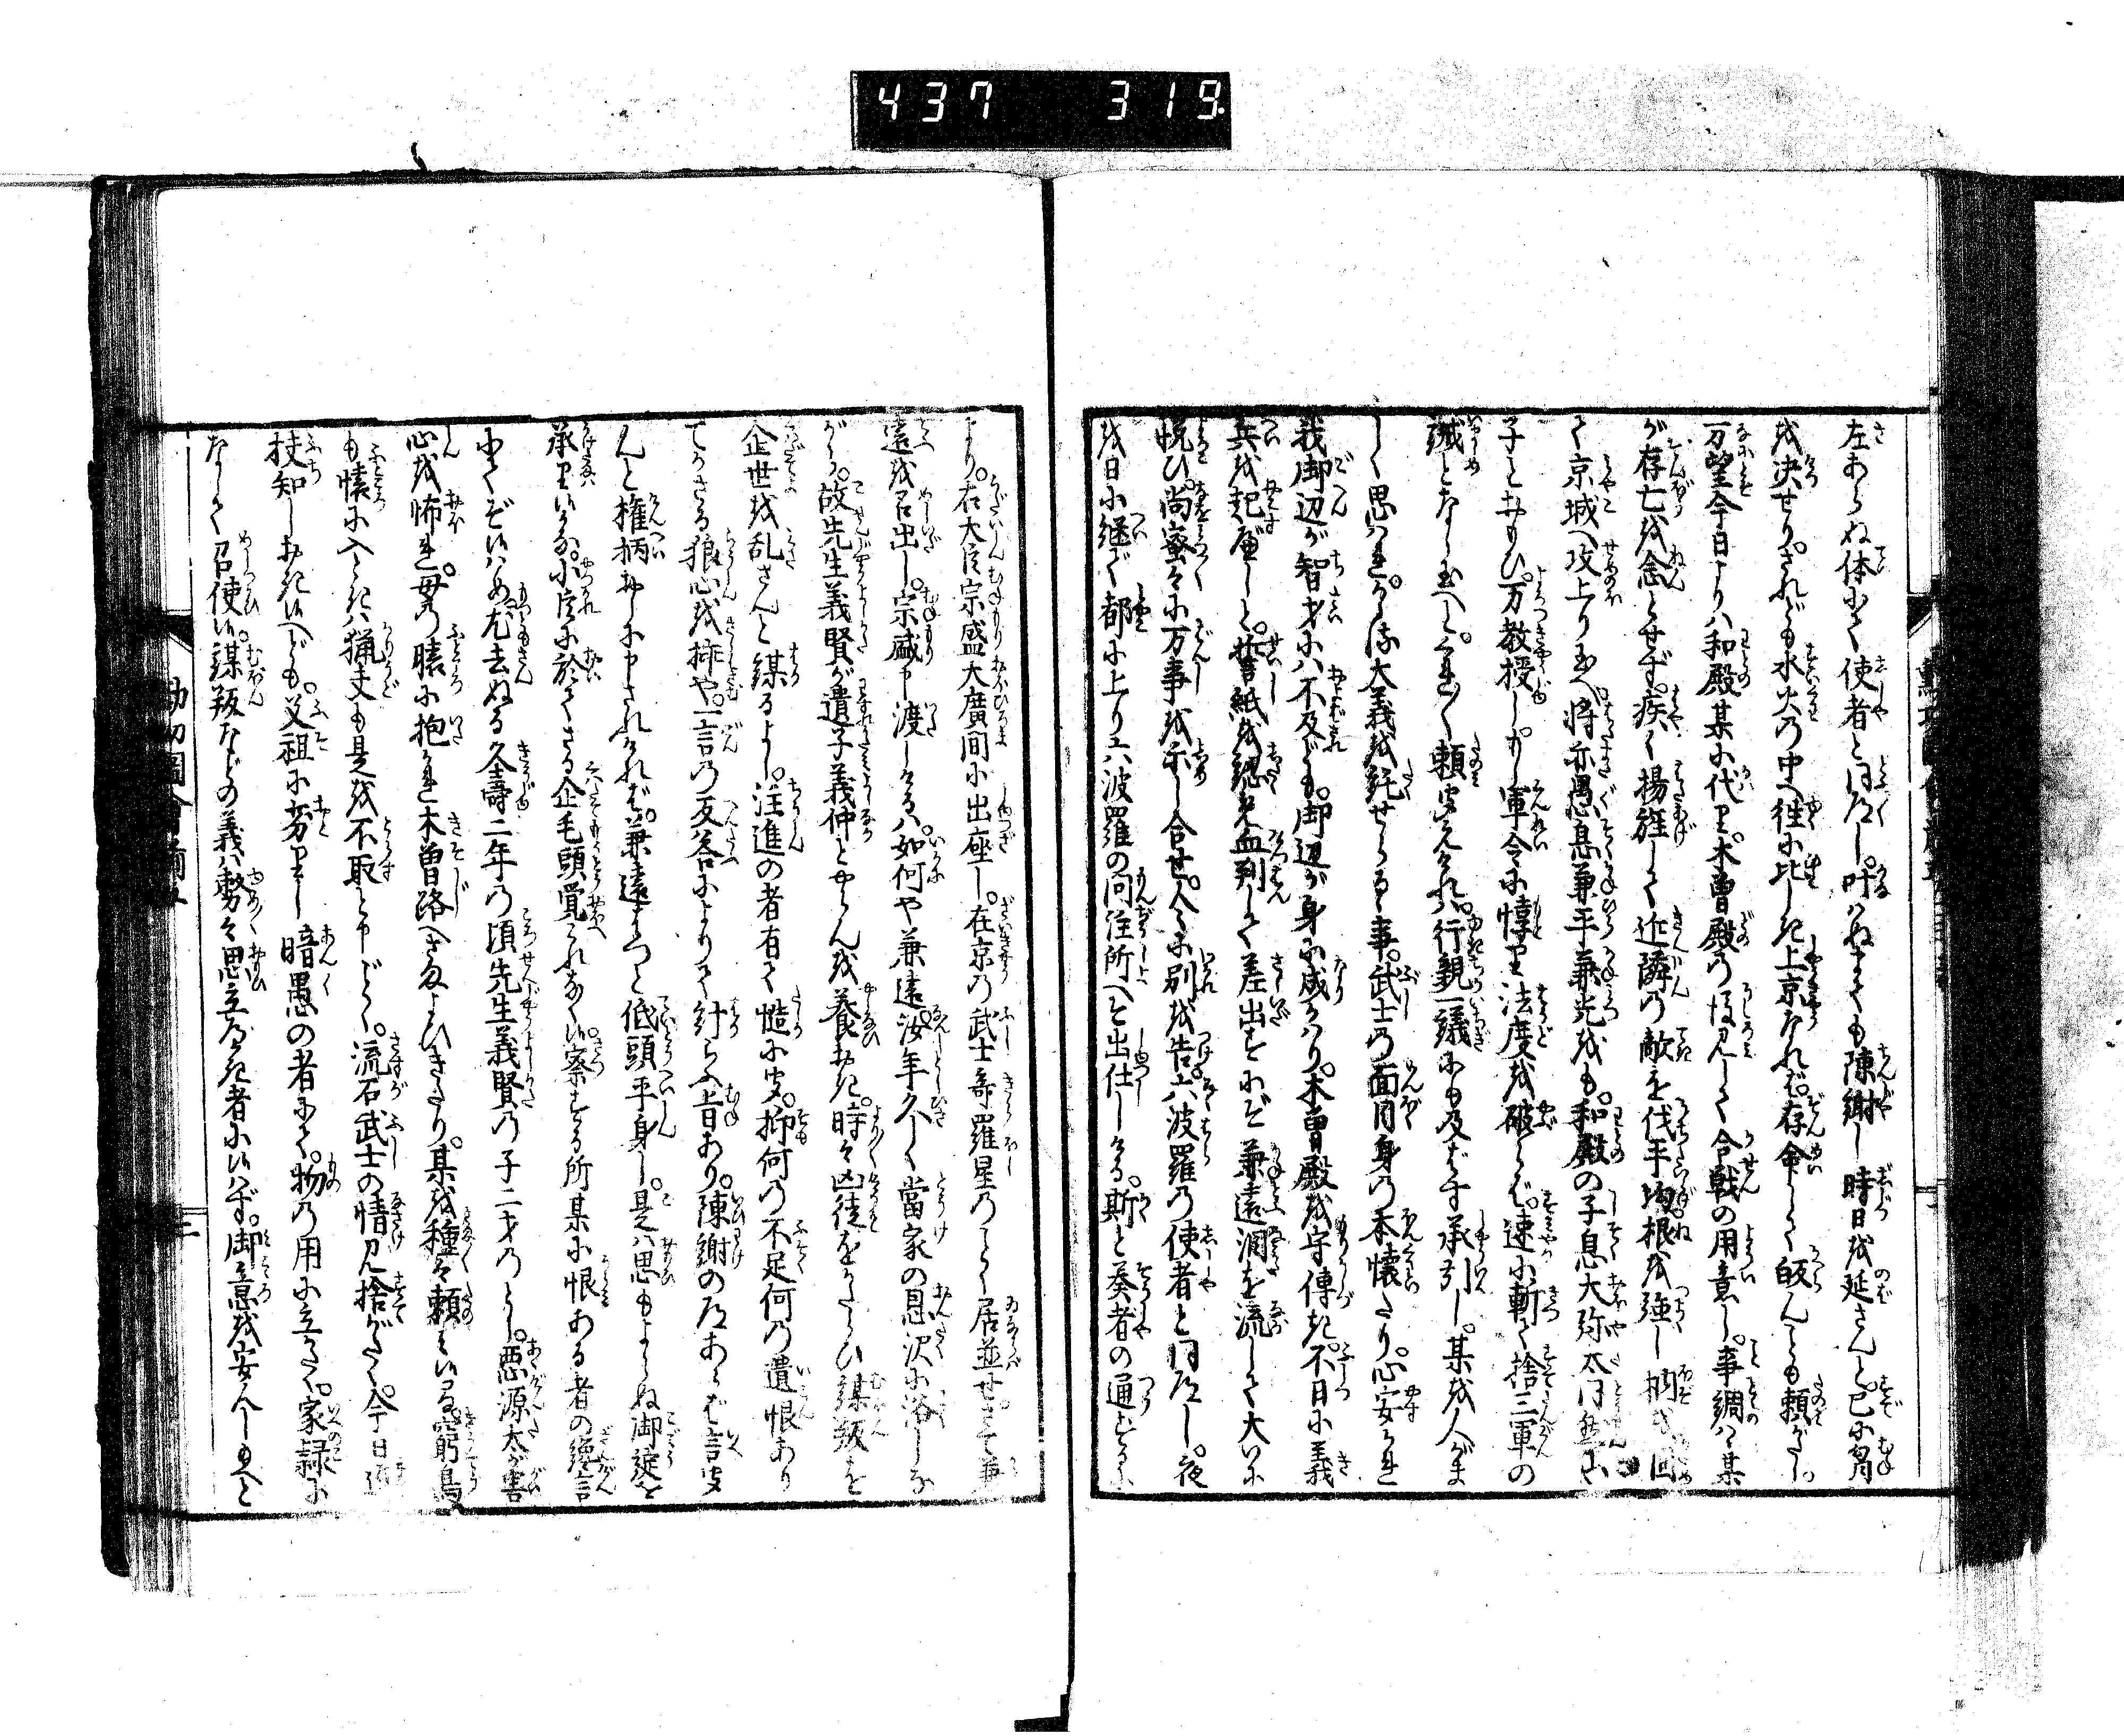 437 319.
左あらぬ体にて使者と同道し。叶はぬまでも陳謝し時日を延さんと。已に胷
を决せり。されども水火の中へ往に比しき上京なれば。存命して皈らんも頼がたし。
万望今日よりは和殿某に代り。木曽殿の後見して合戦の用意し。事調はゞ某
が存亡を念とせず。疾く揚旌して近隣の敵を伐平均根を強し
て京城へ攻上り玉へ。将亦愚息兼平兼光をも。和殿の子息大弥太同然に
子とおもひ。万教授し。もし軍令に悖り法度を破らば。速に斬て捨三軍の
誡となし玉へと。くれ〴〵頼聞えければ。行親一議にも及ばず承引し。某を人がま
しく思はれ。かゝる大義を託せらるゝ事。武士の面目身の本懐たり。心安かれ
我御辺が智才には不及ども。御辺が身に成かはり。木曽殿を守傳き。不日に義
兵を起べしと。誓紙を認め血判して差出すにぞ兼遠涙を流して大いに
悦び。尚蜜々に万事を示し合せ。人々に別を告。六波羅の使者と同道し。夜
を日に継で都に上り六波羅の問注所へと出仕しける。斯と奏者の通ずるに
より。右大臣宗盛大廣間に出座し。在京の武士綺羅星のごとく居並せさて兼
遠を召出し。宗盛申渡しけるは。如何や兼遠。汝年久しく當家の恩沢に浴しな
がら。故先生義賢が遺子義仲とやらんを養おき。時々凶徒をかたらひ謀叛を
企世を乱さんと謀るよし。注進の者有て慥に聞。抑何の不足何の遺恨あり
てかさる狼心を挿や。一言の反答によりて計らふ旨あり。陳謝の道あらば言聞
んと権柄おしに申されければ。兼遠はつと低頭平身し。是は思もよらぬ御諚を
承り候かな。小臣に於てさる企毛頭覚これなく候。察する所某に恨ある者の讒言
にてぞ候はめ。尤去ぬる久壽二年の頃先生義賢の子二才のとし。悪源太が害
心を怖れ。母の膝に抱かれ木曽路へさまよひきたり。某を種々頼み候ゆゑ窮鳥
も懐に入ときは猟夫も是を不取と申ごとく。流石武士の情見捨がたく。今日迄
扶知しおき候へども。父祖に劣りし暗愚の者にて。物の用に立がたく。家禄に
なして召使候。謀叛などの義は努々思立べき者に候はず。御意を安んじ玉へと